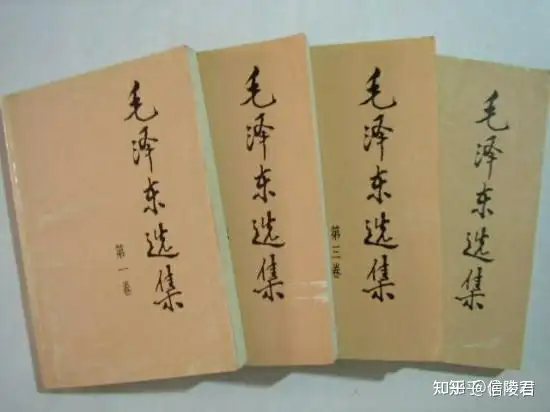 毛泽东选集
第一卷
毛泽东选集
毛泽东选集
第三卷
毛泽东选集
知乎 @信陵君